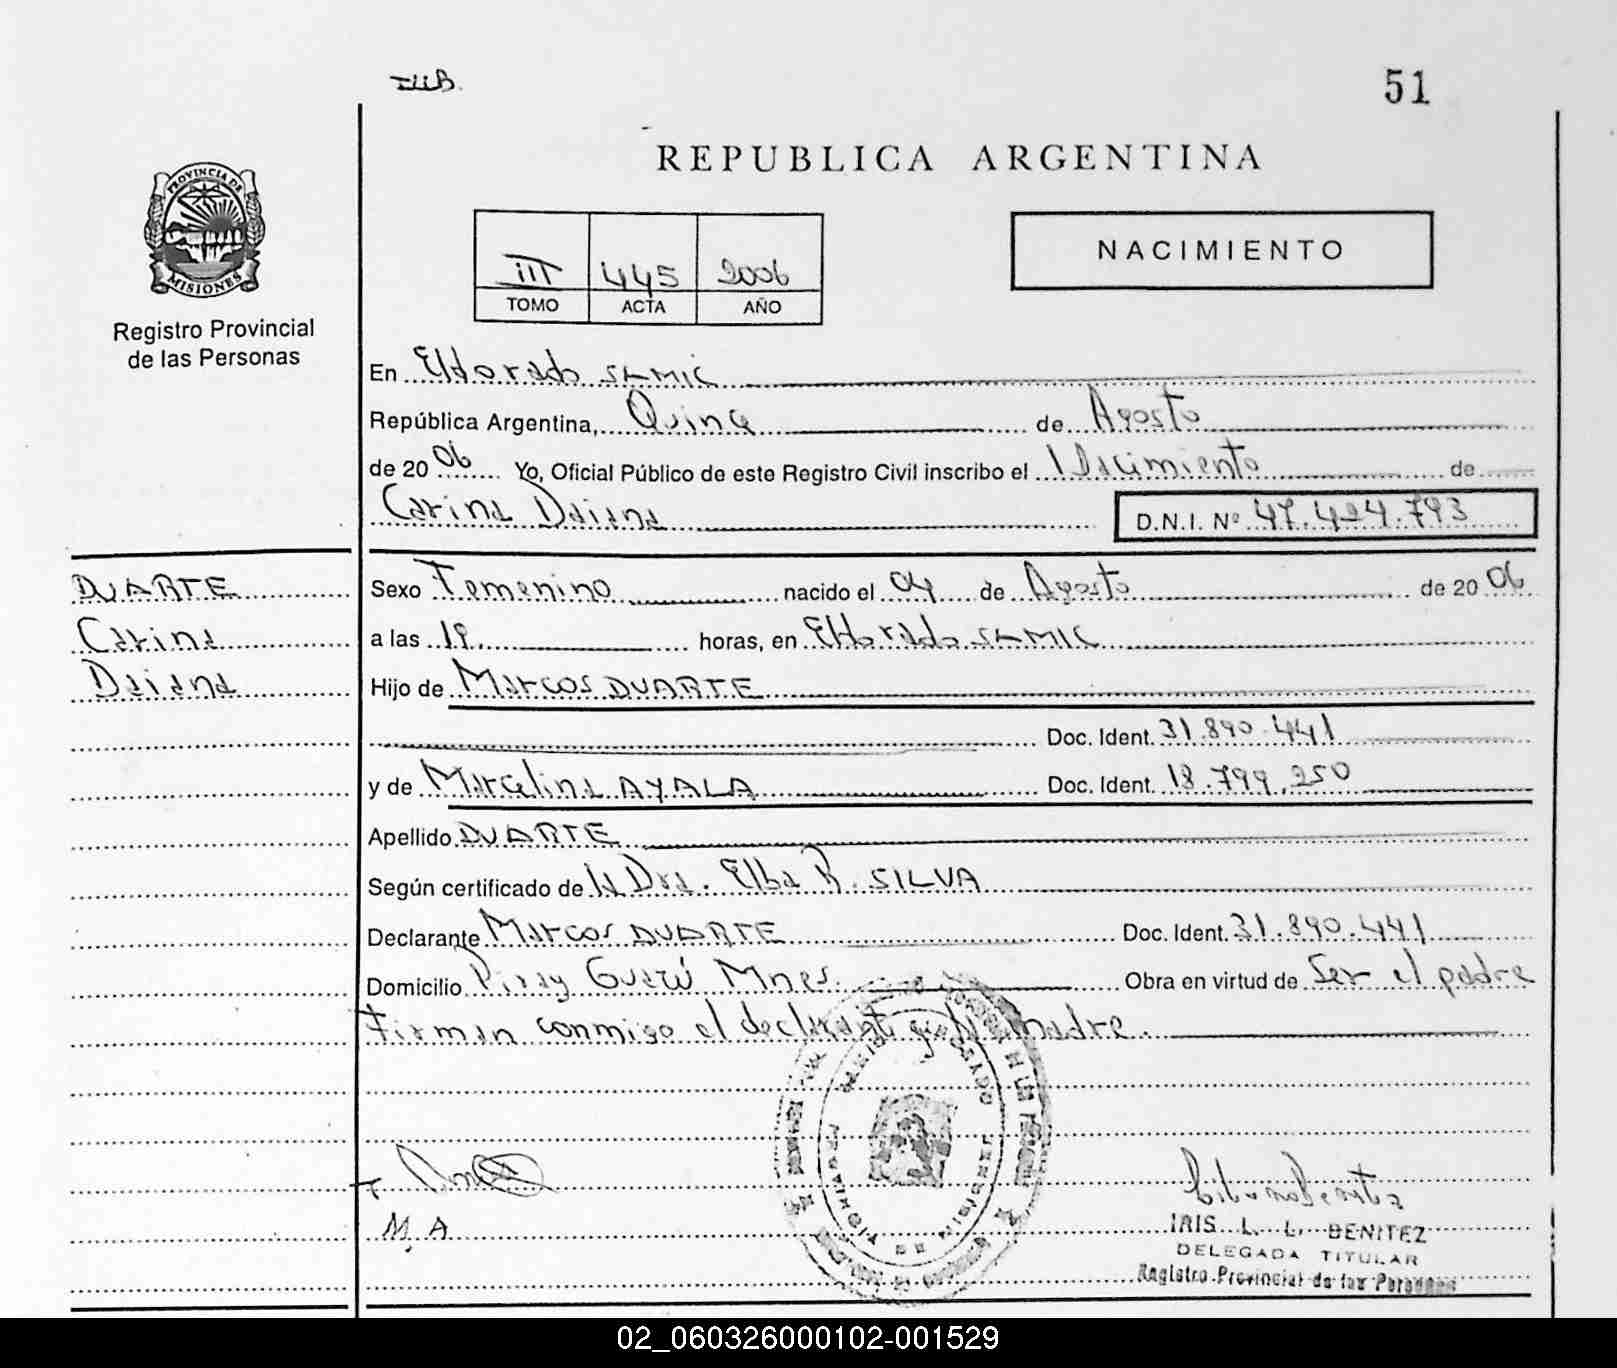 51
REPUBLICA ARGENTINA
PROVINCIA DE
MISIONES
Registro Provincial
de las Personas
III 445 2006
TOMO ACTA AÑO
NACIMIENTO
En Eldorado SAMIC
República Argentina, Quince de Agosto
de 20 06 Yo, Oficial Público de este Registro Civil inscribo el Nacimiento de
Carina Daiana D.N.I. Nº 47.424.793
DUARTE
Carina
Daiana
Sexo Femenino nacido el 04 de Agosto de 20 06
a las 19 horas, en Eldorado SAMIC
Hijo de Marcos DUARTE
Doc. Ident. 31.890.441
y de Marcelina AYALA Doc. Ident. 18.799.250
Apellido DUARTE
Según certificado de la Dra. Elba R. SILVA
Declarante Marcos DUARTE Doc. Ident. 31.890.441
Domicilio Piray Guazú Mnes. Obra en virtud de Ser el padre
Firman conmigo el declarante y la madre.
M. A
IRIS L. L. BENITEZ
DELEGADA TITULAR
Registro Provincial de las Personas
02_060326000102-001529